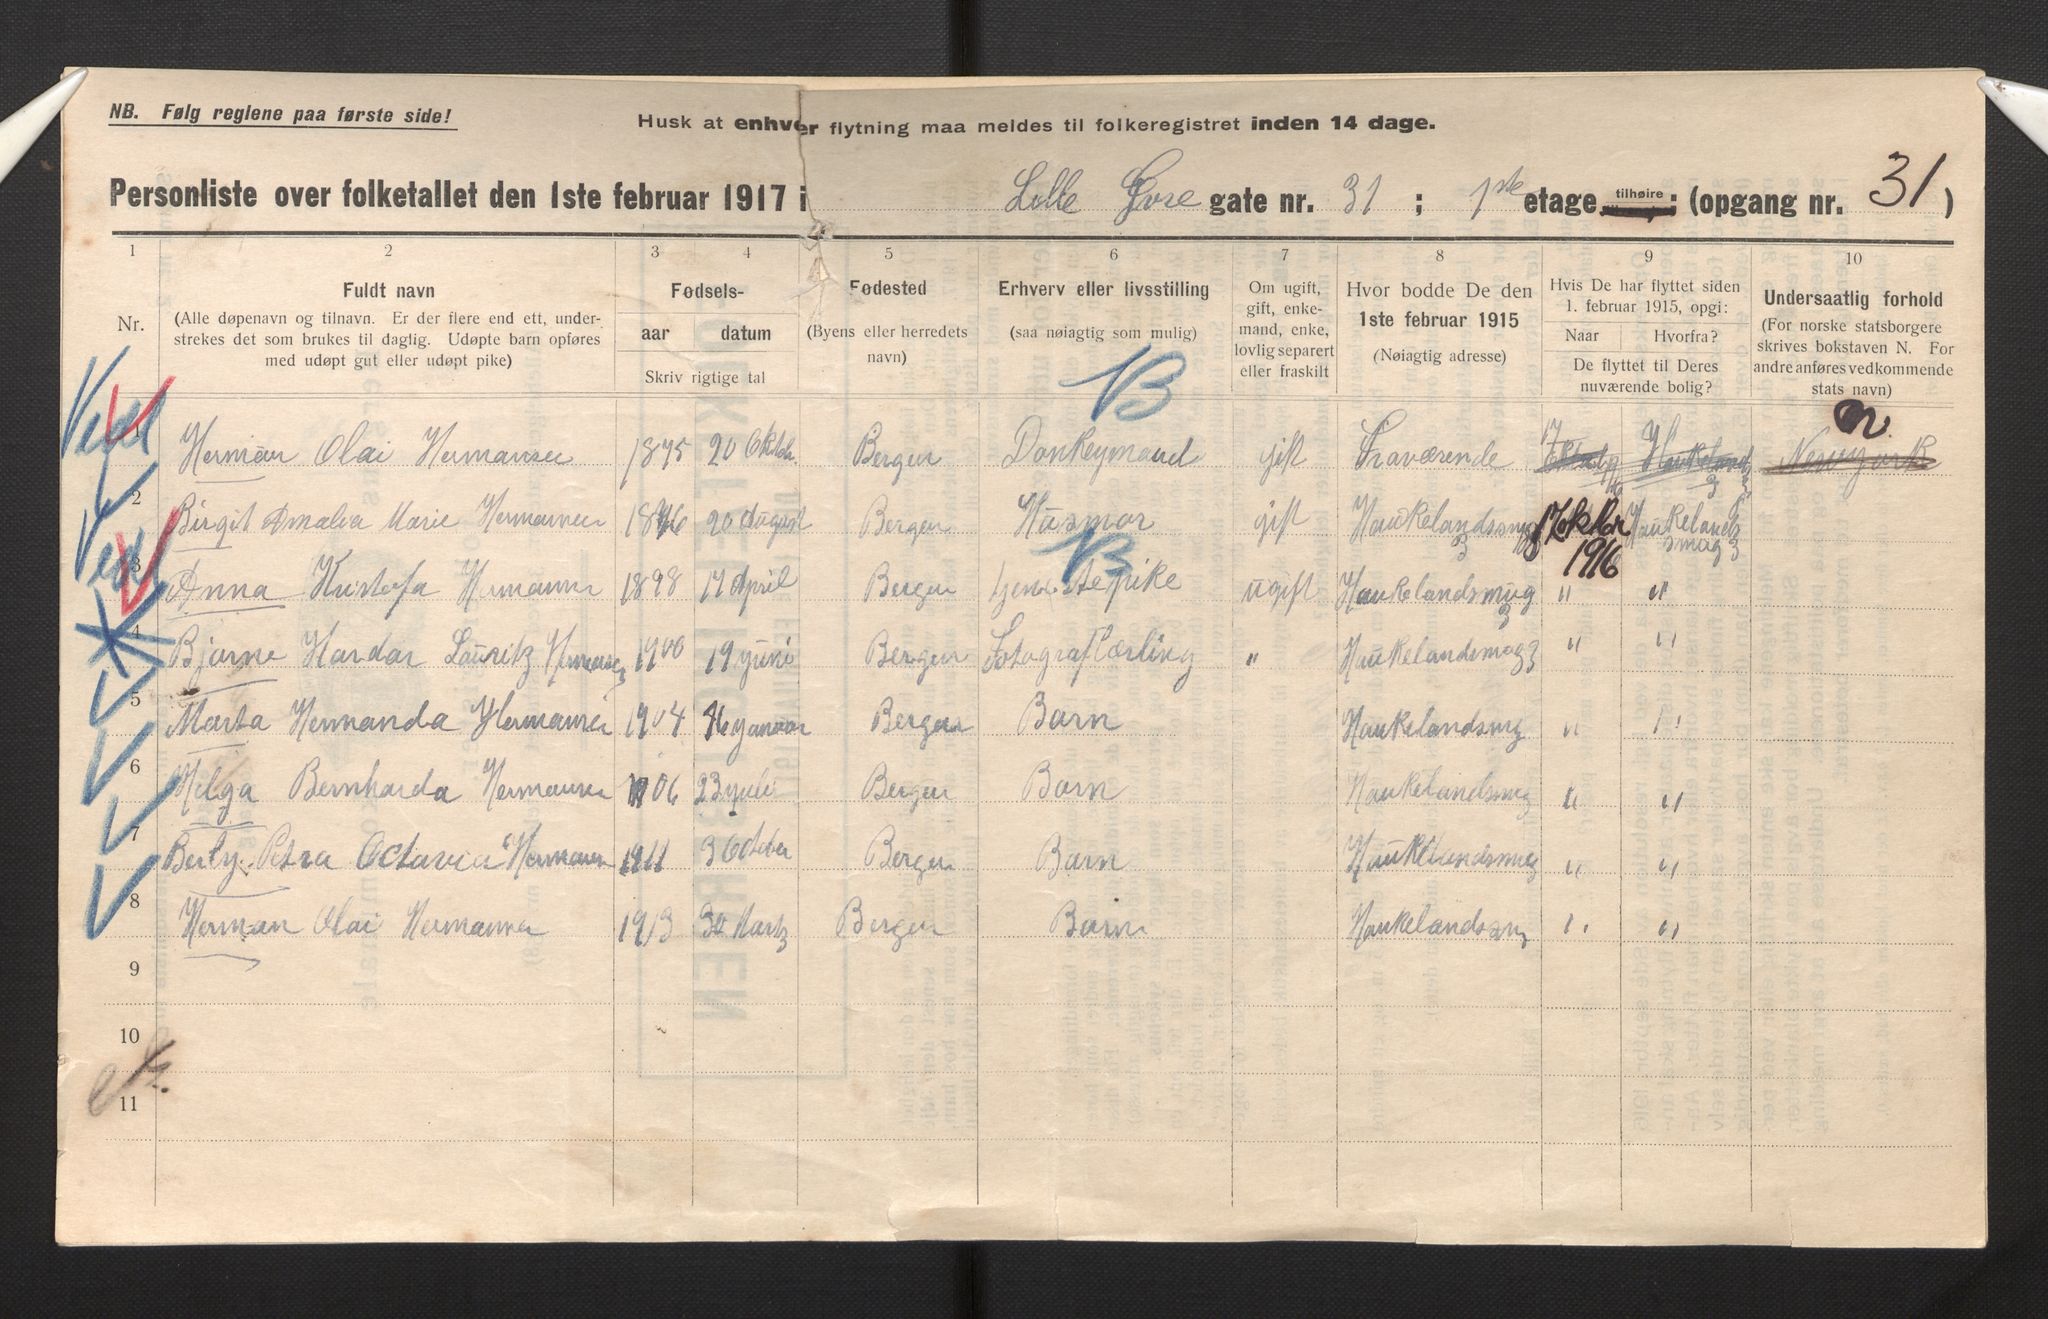 NB. Følg reglene paa første side!
Husk at enhver flytning maa meldes til folkeregistret inden 14 dage.
Personliste over folketallet den 1ste februar 1917 i Lille Øvre gate nr. 31 ; 1ste etage tilhøire : (opgang nr. 31)
1 2 3 4 5 6 7 8 9 10
Nr.
Fuldt navn
(Alle døpenavn og tilnavn. Er der flere end ett, under-
strekes det som brukes til daglig. Udøpte barn opføres
med udøpt gut eller udøpt pike)
Fødsels-
aar datum
Skriv rigtige tal
Fødested
(Byens eller herredets
navn)
Erhverv eller livsstilling
(saa nøiagtig som mulig)
Om ugift,
gift, enke-
mand, enke,
lovlig separert
eller fraskilt
Hvor bodde De den
1ste februar 1915
(Nøiagtig adresse)
Hvis De har flyttet siden
1. februar 1915, opgi:
Naar Hvorfra?
De flyttet til Deres
nuværende bolig?
Undersaatlig forhold
(For norske statsborgere
skrives bokstaven N. For
andre anføres vedkommende
stats navn)
B
1 Herman Olai Hermansen 1875 20 Oktbr. Bergen Donkeymand gift Fraværende Haukelandsmug Newyork
2 Birgit Amalia Marie Hermansen 1876 20 August Bergen Husmor gift Haukelandsmug 17 oktbr 1916 Haukelandsmug
B
3 Anna Kristofa Hermansen 1898 17 April Bergen tjenestepike ugift Haukelandsmug " "
4 Bjarne Hardar Lauritz Hermansen 1900 19 Juni Bergen Fotograflærling " Haukelandsmug " "
5 Marta Hermanda Hermansen 1904 16 Januar Bergen Barn Haukelandsmug " "
6 Helga Bernharda Hermansen 1906 23 Juli Bergen Barn Haukelandsmug " "
7 Berly Petra Octavia Hermansen 1911 3 October Bergen Barn Haukelandsmug " "
8 Herman Olai Hermansen 1913 30 Marts Bergen Barn Haukelandsmug " "
9
10
11